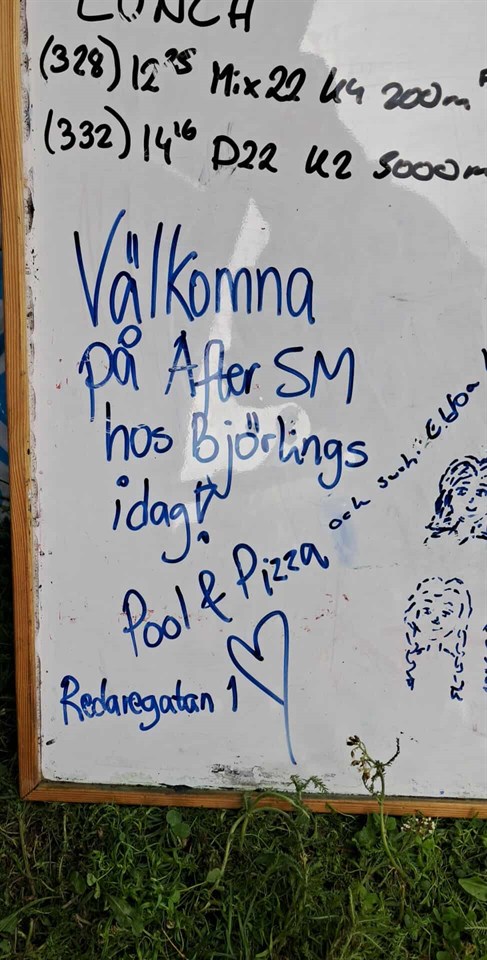 LUNCH
(328) 12²⁵ Mix22 K4 200m
(332) 14¹⁶ D22 K2 5000m
Välkomna
på After SM
hos Björlings
idag!
Pool & Pizza
och sushi
Redaregatan 1